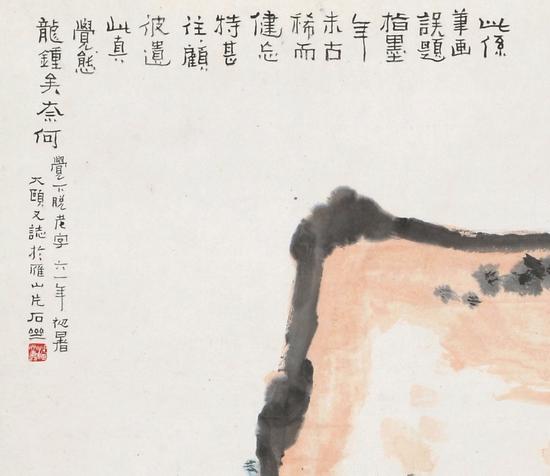 此係
筆画
誤題
指墨
年
未古
稀而
健忘
特甚
往々顧
彼遺
此真
覺態
龍鍾矣奈何
覺下脫老字 六一年初暑
大頤又誌於雁山片石